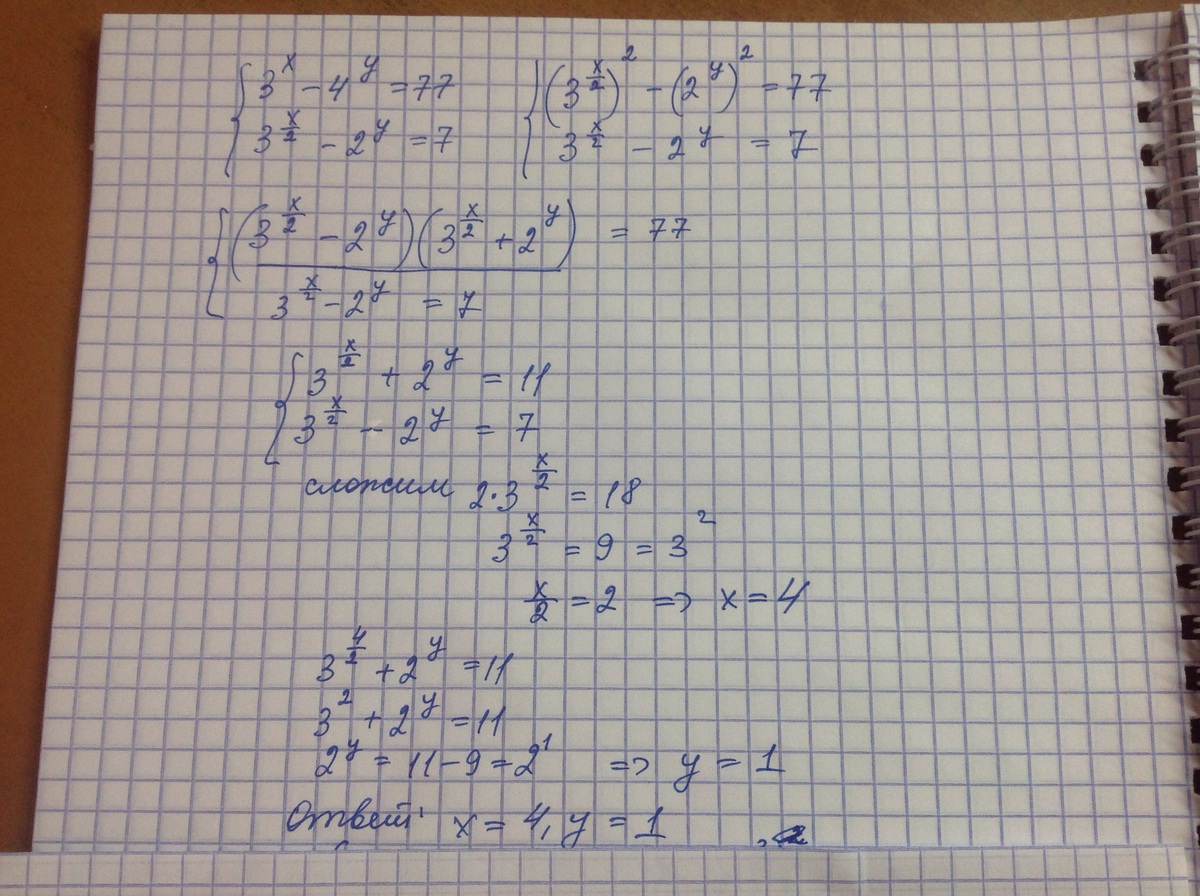 { 3^x − 4^y = 77 { (3^(x/2))^2 − (2^y)^2 = 77
3^(x/2) − 2^y = 7 3^(x/2) − 2^y = 7
{ (3^(x/2) − 2^y)(3^(x/2) + 2^y) = 77
3^(x/2) − 2^y = 7
{ 3^(x/2) + 2^y = 11
3^(x/2) − 2^y = 7
сложим 2·3^(x/2) = 18
3^(x/2) = 9 = 3^2
x/2 = 2 => x = 4
3^(4/2) + 2^y = 11
3^2 + 2^y = 11
2^y = 11 − 9 = 2^1 => y = 1
Ответ: x = 4, y = 1